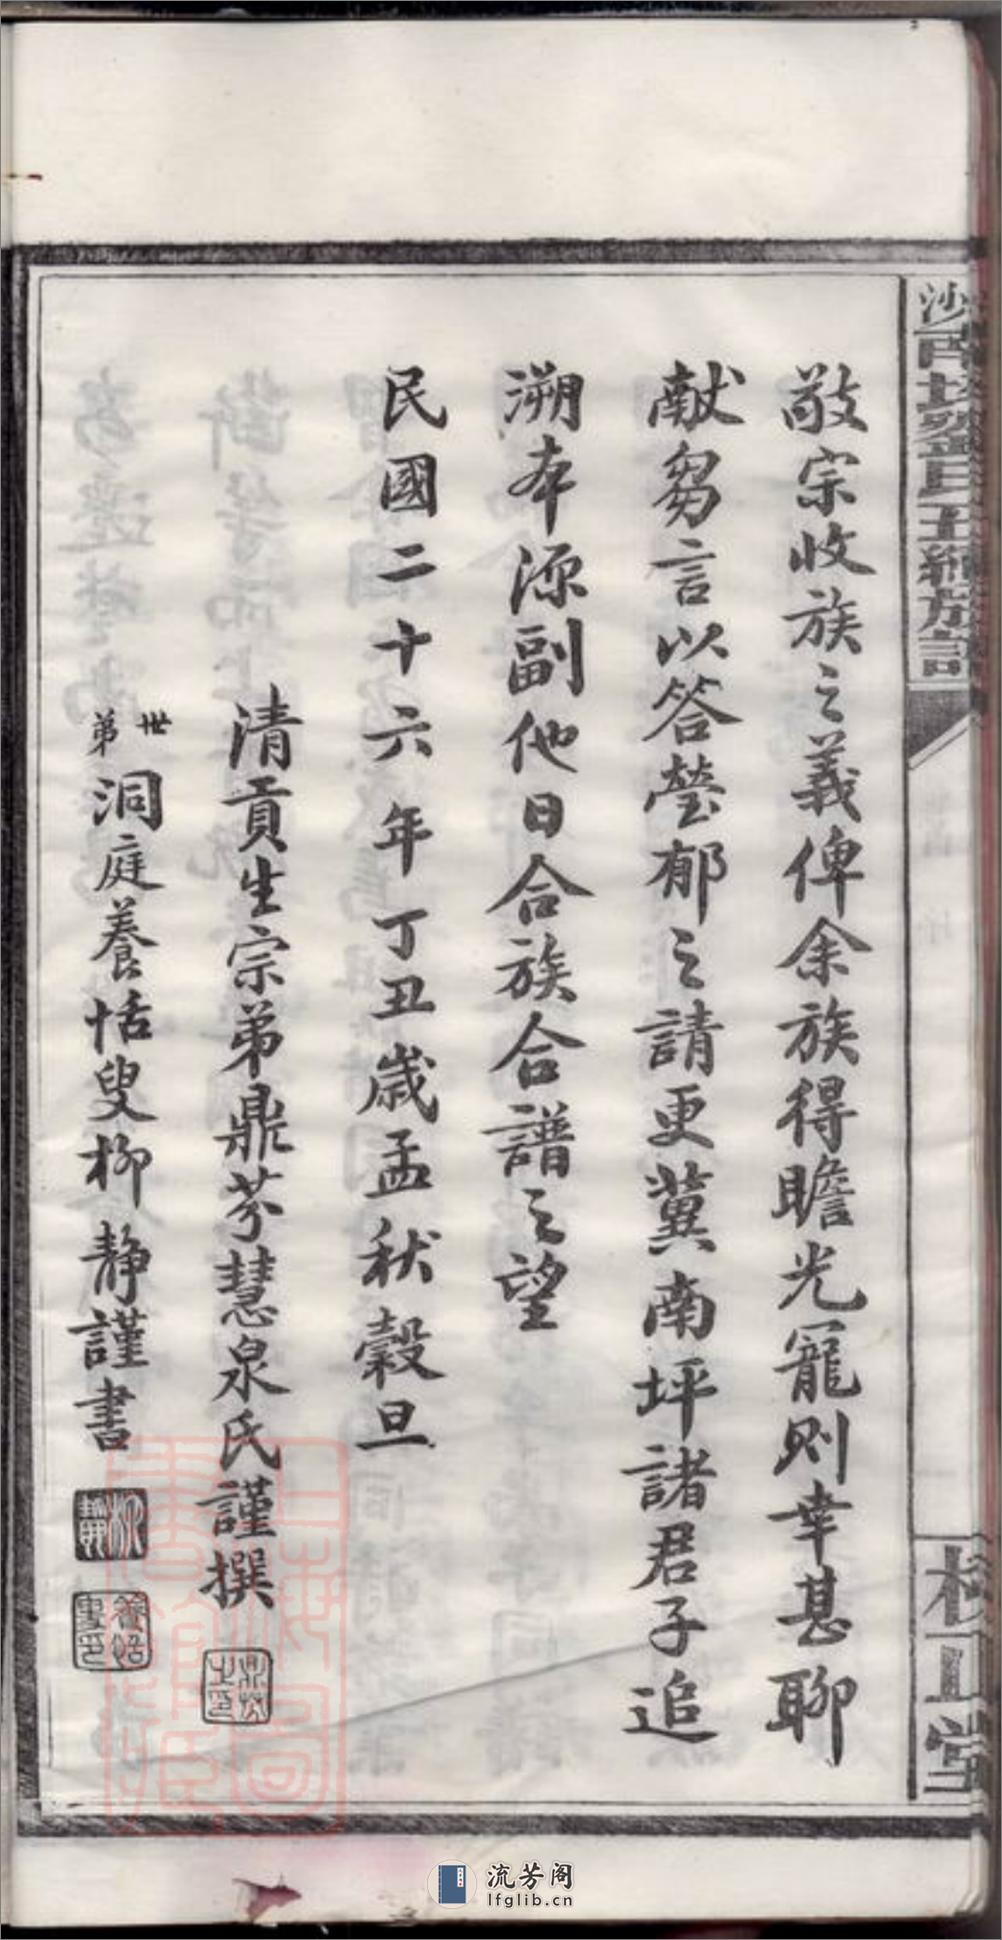 敬宗收族之義俾余族得瞻光寵則幸甚聊
獻芻言以答瑩郁之請更冀南坪諸君子追
溯本源副他日合族合譜之望
民國二十六年丁丑歲孟秋穀旦
清貢生宗弟鼎芬慧泉氏謹撰
世弟洞庭養恬叟柳靜謹書
流芳阁
lfglib.cn